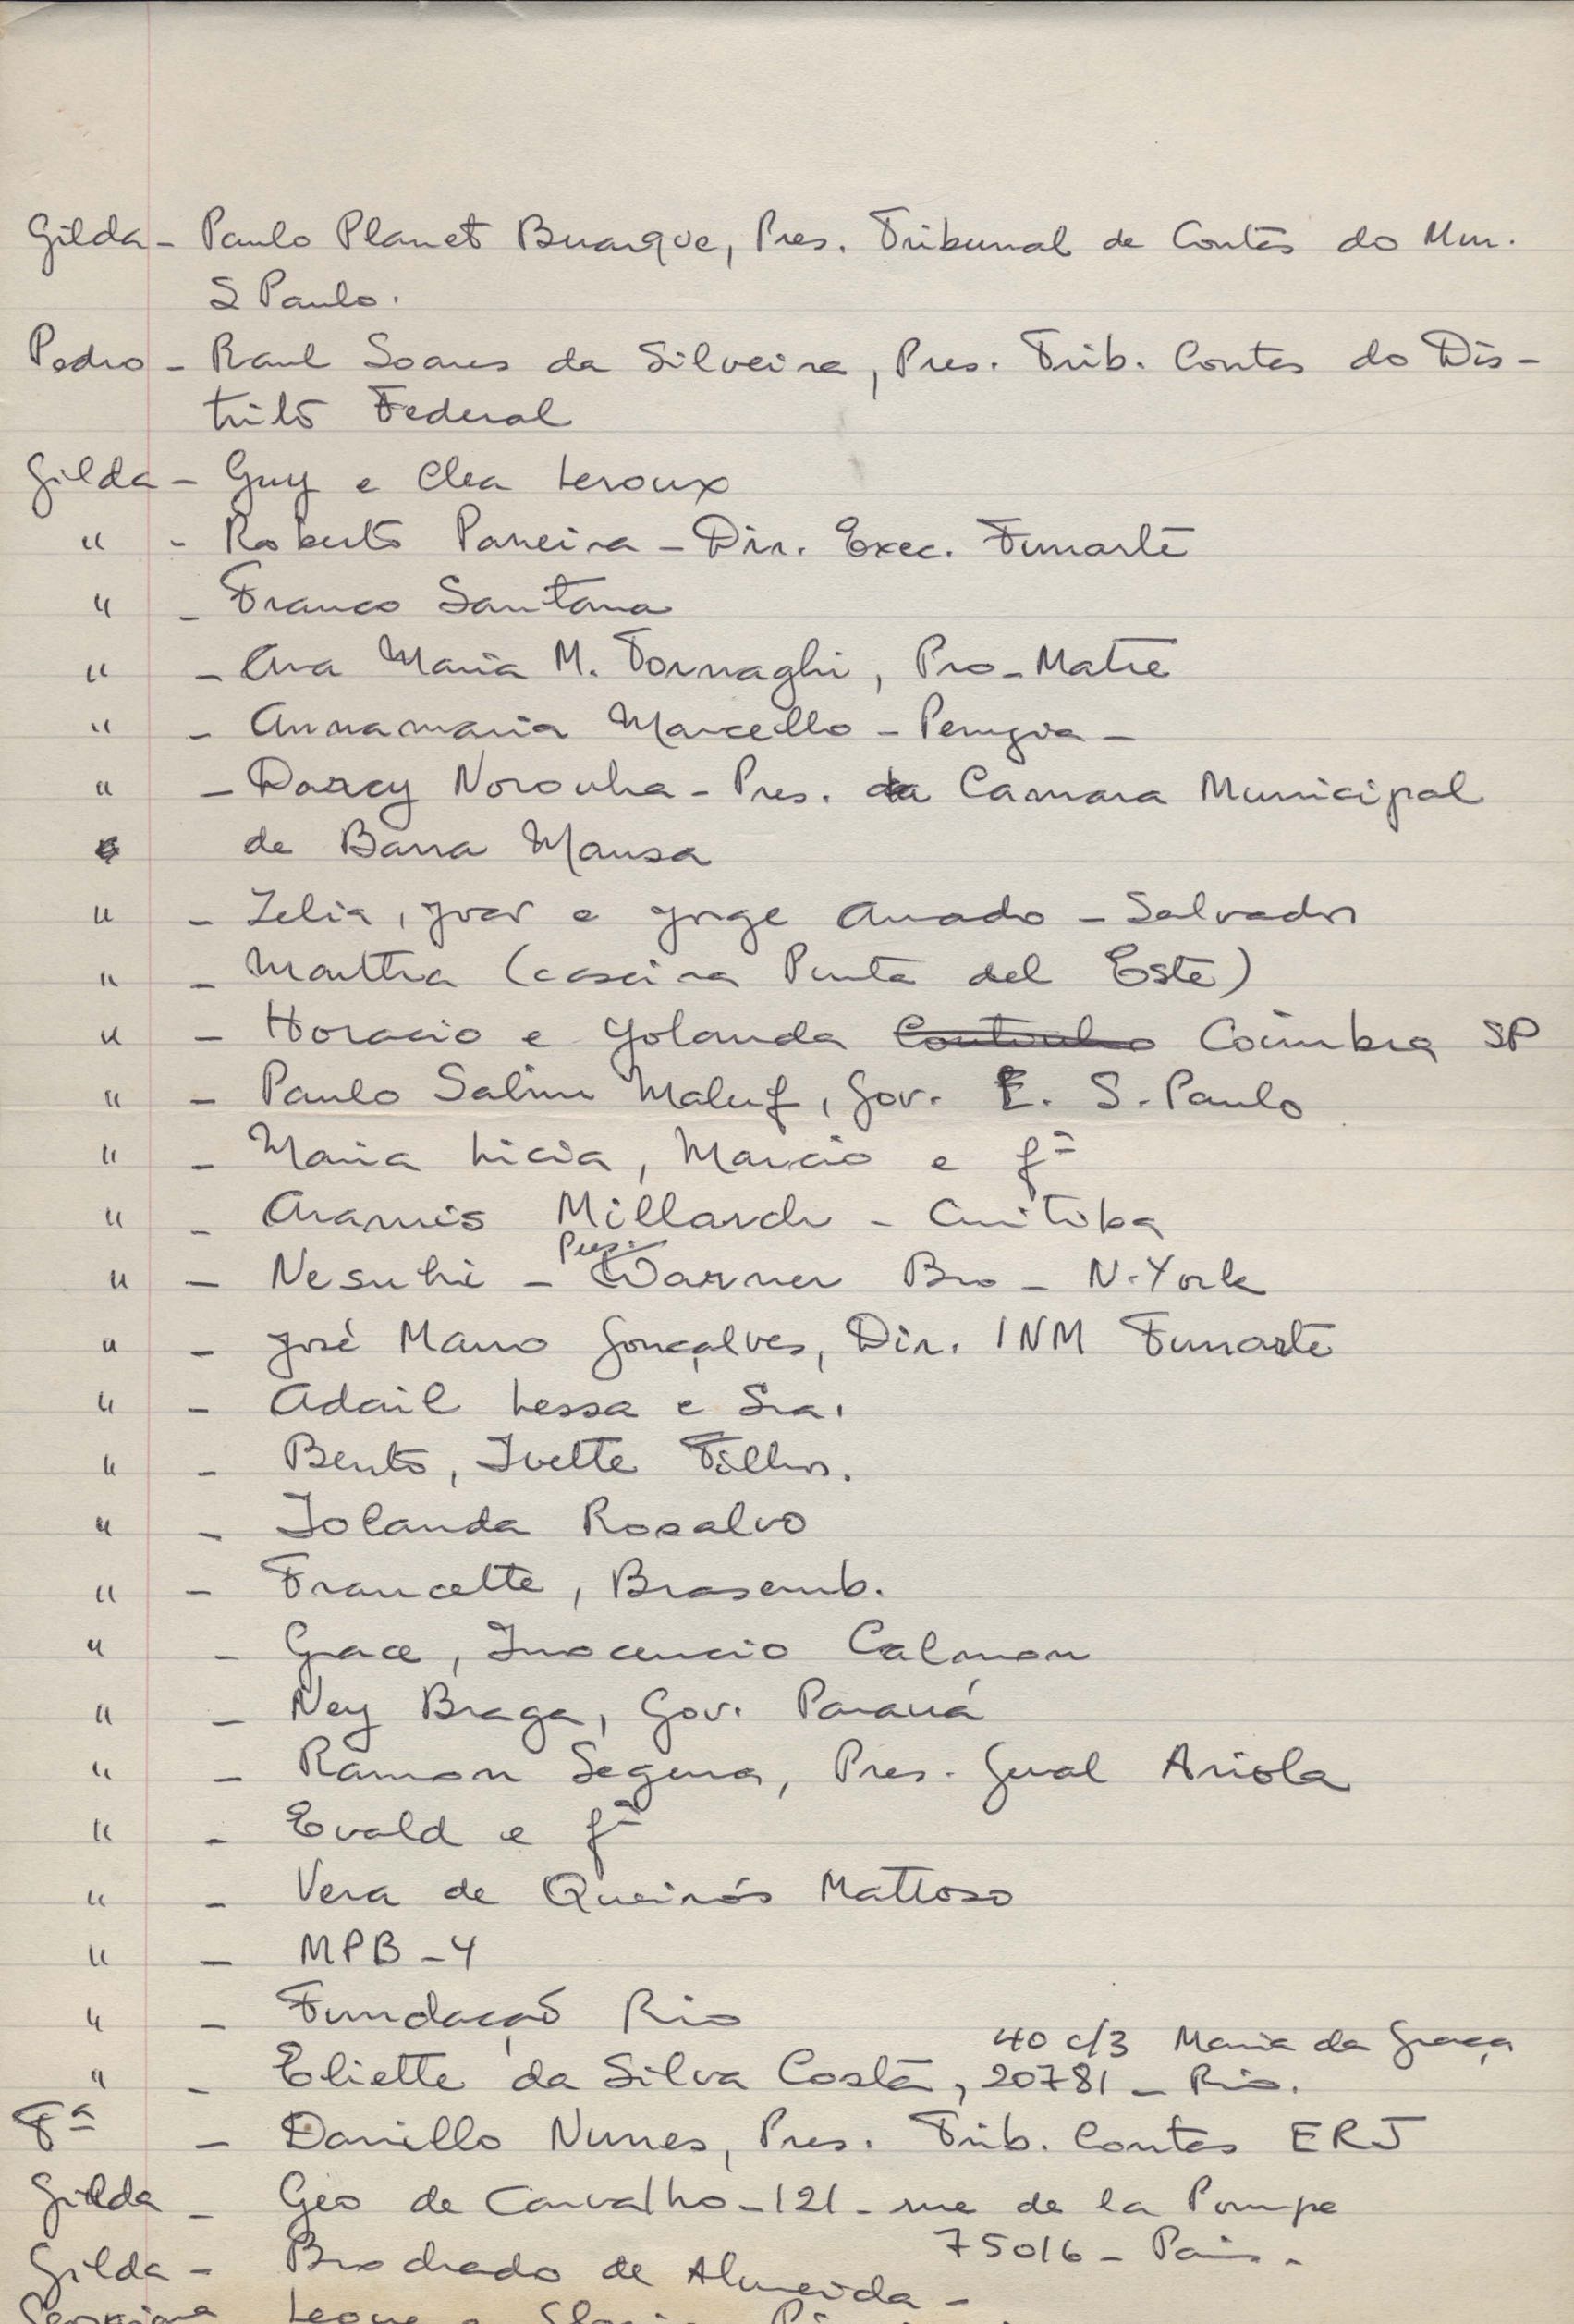 Gilda - Paulo Planet Buarque, Pres. Tribunal de Contas do Mun.
S Paulo.
Pedro - Raul Soares da Silveira, Pres. Trib. Contas do Dis-
trito Federal
Gilda - Guy e Clea Leroux
" - Roberto Parreira - Dir. Exec. Funarte
" - Franco Santana
" - Ana Maria M. Tornaghi, Pro-Matre
" - Annamaria Marcello - Perugia -
" - Darcy Noronha - Pres. da Camara Municipal
de Barra Mansa
" - Zelia, João e Jorge Amado - Salvador
" - Martha (caseira Punta del Este)
" - Horacio e Yolanda Coutinho Coimbra SP
" - Paulo Salim Maluf, Gov. E. S. Paulo
" - Maria Licia, Marcio e fª
" - Aramis Millarch - Curitiba
" - Nesuhi - Pres. Warner Bro - N. York
" - José Mauro Gonçalves, Dir. INM Funarte
" - Adail Lessa e Sra.
" - Bento, Ivette Filhos.
" - Iolanda Rosalvo
" - Francette, Brasemb.
" - Grace, Inocencio Calmon
" - Ney Braga, Gov. Paraná
" - Ramon Segura, Pres. Gual Ariola
" - Evald e fª
" - Vera de Queirós Mattoso
" - MPB-4
" - Fundação Rio
40 c/3 Maria da Graça
" - Eliette da Silva Costa, 20781 - Rio.
Fª - Danillo Nunes, Pres. Trib. Contas ERJ
Gilda - Géo de Carvalho - 121 - rue de la Pompe
75016 - Paris -
Gilda - Brochado de Almeida -